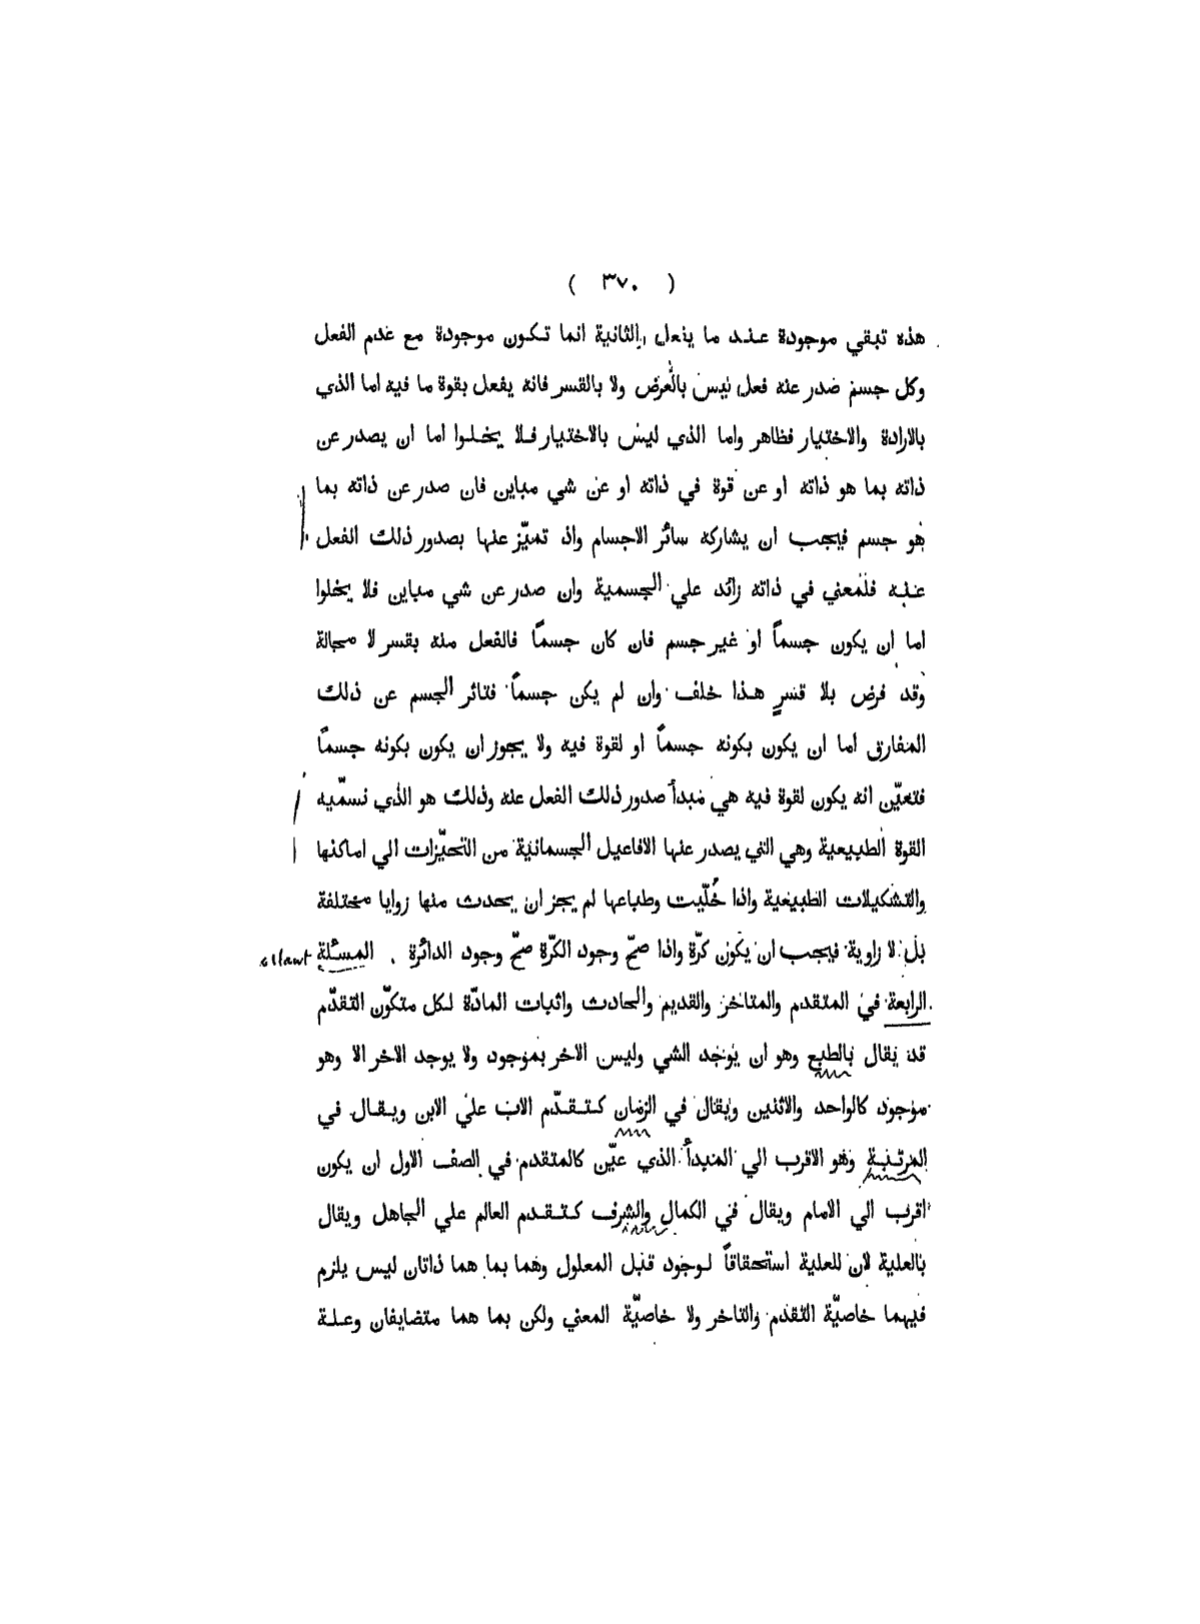 ( ٣٧٠ )
هذه تبقي موجودة عند ما ينعل والثانية انما تكون موجودة مع عدم الفعل
وكل جسم صدر عنه فعل ليس بالعرض ولا بالقسر فانه يفعل بقوة ما فيه اما الذي
بالارادة والاختيار فظاهر واما الذي ليس بالاختيار فلا يخلوا اما ان يصدر عن
ذاته بما هو ذاته او عن قوة في ذاته او عن شي مباين فان صدر عن ذاته بما
هو جسم فيجب ان يشاركه سائر الاجسام واذ تميّز عنها بصدور ذلك الفعل
عنه فلمعني في ذاته زائد علي الجسمية وان صدر عن شي مباين فلا يخلوا
اما ان يكون جسماً او غير جسم فان كان جسمًا فالفعل منه بقسر لا محالة
وقد فرض بلا قسرٍ هذا خلف وان لم يكن جسماً فتاثر الجسم عن ذلك
المفارق اما ان يكون بكونه جسماً او لقوة فيه ولا يجوز ان يكون بكونه جسمًا
فتعيّن انه يكون لقوة فيه هي مبدأ صدور ذلك الفعل عنه وذلك هو الذي نسمّيه
القوة الطبيعية وهي التي يصدر عنها الافاعيل الجسمانية من التحيّزات الي اماكنها
والتشكيلات الطبيعية واذا خُلّيت وطباعها لم يجز ان يحدث منها زوايا مختلفة
بل لا زاوية فيجب ان يكون كرّة واذا صحّ وجود الكرّة صحّ وجود الدائرة . المسئلة
الرابعة في المتقدم والمتاخر والقديم والحادث واثبات المادّة لكل متكوّن التقدّم
قد يقال بالطبع وهو ان يوجد الشي وليس الاخر بموجود ولا يوجد الاخر الا وهو
موجود كالواحد والاثنين ويقال في الزمان كتقدّم الاب علي الابن ويقال في
المرتبة وهو الاقرب الي المبدأ الذي عيّن كالمتقدم في الصف الاول ان يكون
اقرب الي الامام ويقال في الكمال والشرف كتقدم العالم علي الجاهل ويقال
بالعلية لان للعلية استحقاقاً لوجود قبل المعلول وهما بما هما ذاتان ليس يلزم
فيهما خاصيّة التقدم والتاخر ولا خاصيّة المعني ولكن بما هما متضايفان وعلة